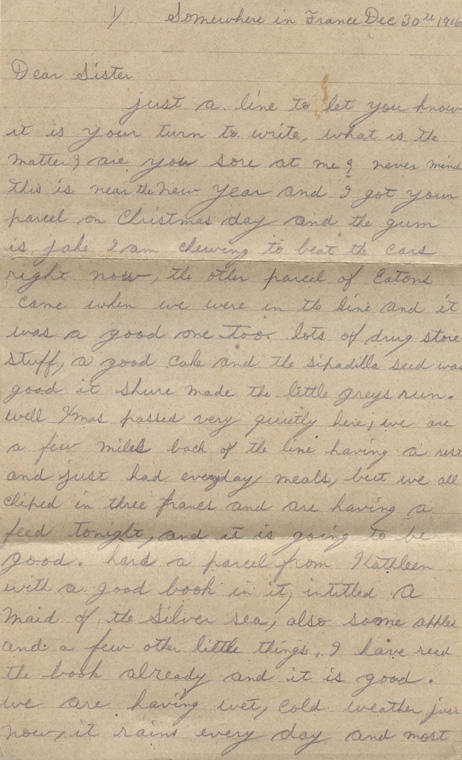 1/ Somewhere in France Dec 30th 1916
Dear Sister
just a line to let you know
it is your turn to write, what is the
matter? are you sore at me? never mind
this is near the New Year and I got your
parcel on Christmas day and the gum
is jake I am chewing to beat the cars
right now, the other parcel of Eatons
came when we were in the line and it
was a good one too. lots of drug store
stuff, a good cake and the sipadilla seed was
good it shure made the little greys run.
well Xmas passed very quietly here, we are
a few miles back of the line having a rest
and just had everyday meals, but we all
cliped in three franks and are having a
feed tonight, and it is going to be
good. hard a parcel from Kathleen
with a good book in it, intitled A
Maid of the Silver sea, also some apples
and a few other little things, I have read
the book already and it is good.
we are having wet, cold weather just
now, it rains every day and most